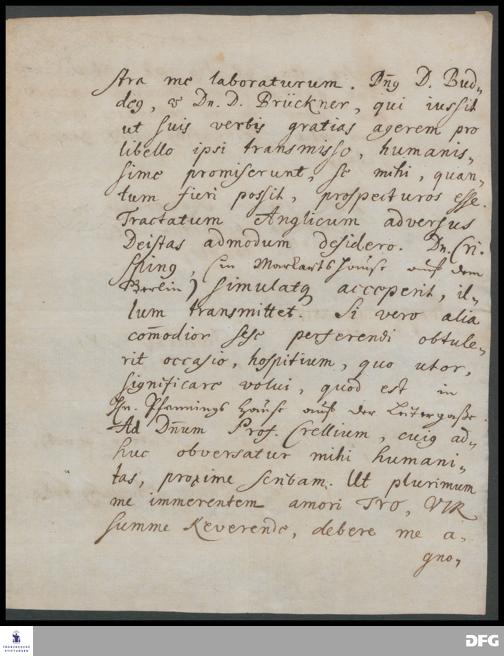 stra me laboraturum. Dn9 D. Bud„
deg, & Dn. D. Brückner, qui iussit
ut suis verbis gratias agerem pro
libello ipsi transmisso, humanis„
sime promiserunt, se mihi, quan„
tum fieri possit, prospecturos esse.
Tractatum Anglicum adversus
Deistas admodum desidero. Dn. Cri„
sping, (in Marckarts Hause auf dem
Berlin) simulatq acceperit, il„
lum transmittet. Si vero alia
com̄odior sese perferendi obtule„
rit occasio, hospitium, quo utor,
significare volui, quod est in
Hn. Pfannings Hause auf der Leitergaße.
Ad Dnum Prof. Crellium, cuig ad„
huc obversatur mihi humani„
tas, proxime scribam. Ut plurimum
me immerentem amori TVO, VIR
summe Reverende, debere me a„
gno„
FRANCKESCHE
STIFTUNGEN
DFG